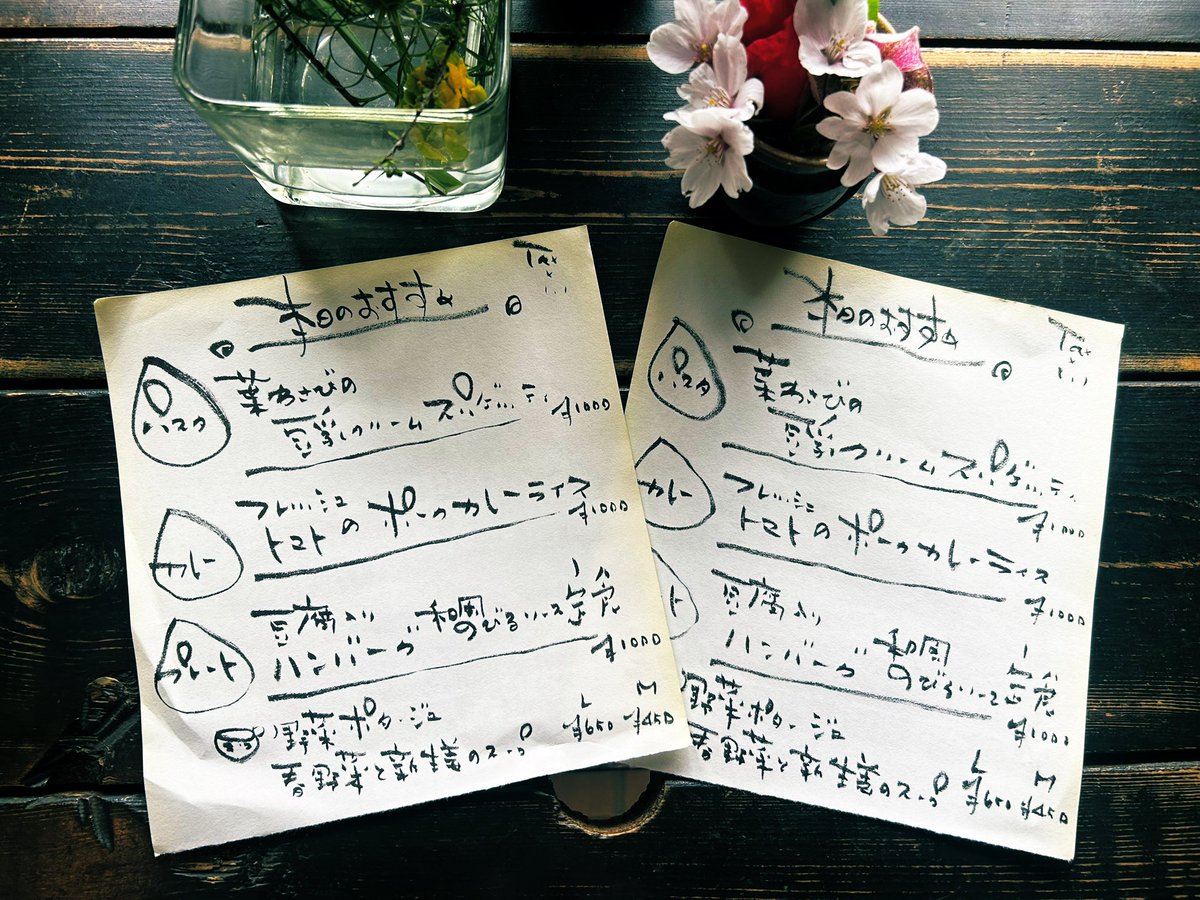 本日のおすすめ
Tax
パスタ
葉わさびの
豆乳クリームスパゲッティ ¥1000
カレー
フレッシュ
トマトのポークカレーライス
¥1000
プレート
豆腐入り
ハンバーグ 和風
のびるソース
¥1000
野菜ポタージュ
春野菜と新生姜のスープ
L M
¥650 ¥450
本日のおすすめ
Tax
パスタ
葉わさびの
豆乳クリームスパゲッティ
¥1000
カレー
フレッシュ
トマトのポークカレーライス
¥1000
ト
豆腐入り
ハンバーグ 和風
のびるソース
¥1000
野菜ポタージュ
春野菜と新生姜のスープ
L M
¥650 ¥450